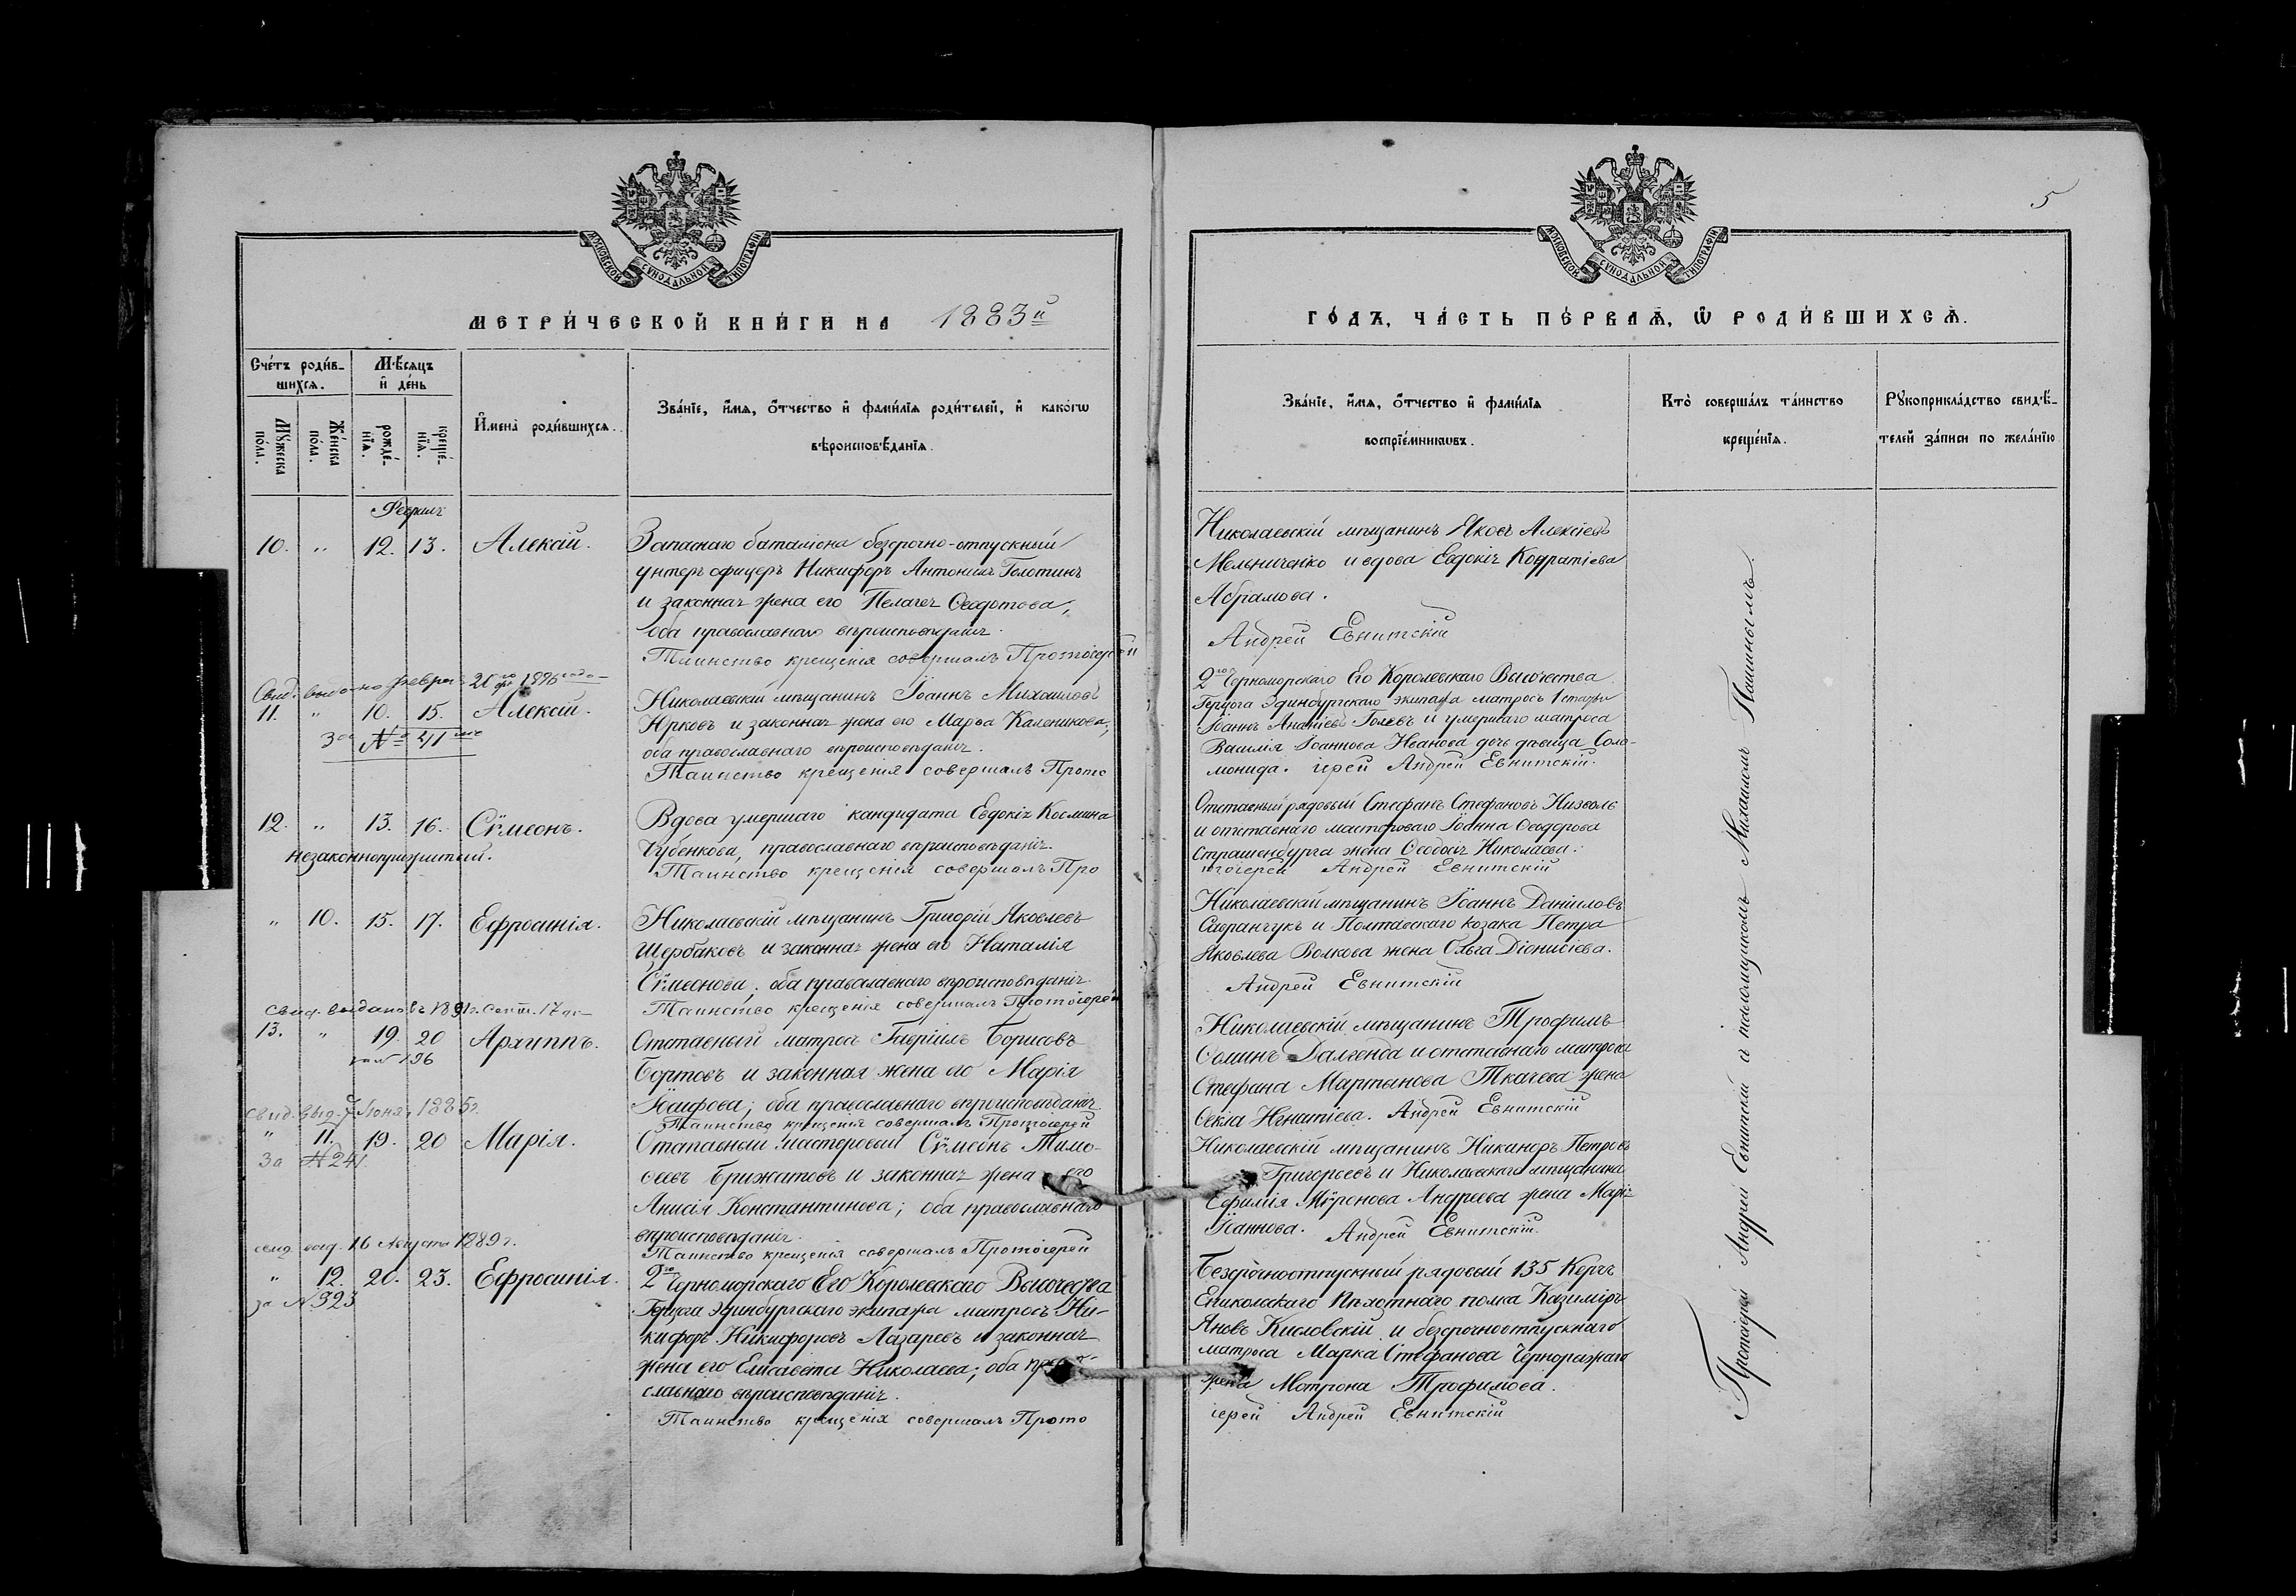 МОСКОВСКОЙ СѴНОДАЛЬНОЙ ТИПОГРАФІИ
МЕТРИ́ЧЕСКОЙ КНИ́ГИ НА 1883й
Сче́тъ роди́в-
шихсѧ.
Мѣ́сѧцъ
и҆ де́нь
Мꙋ́жеска
по́ла.
Же́нска
по́ла.
рожде́-
нїѧ.
креще́-
нїѧ.
И҆мена̀ роди́вшихсѧ.
Зва́нїе, и҆́мѧ, ѻ҆́тчество и҆ фами́лїѧ роди́телей, и҆ како́гѡ
вѣроисповѣ́данїѧ.
Февраль
10. " 12. 13. Алексій.
Запаснаго баталіона безсрочно-отпускный
унтеръ офицеръ Никифоръ Антоніевъ Голотинъ
и законная жена его Пелагея Ѳеодотова,
оба православнаго вѣроисповѣданія.
Таинство крещенія совершалъ Протоіерей
Свид. выдано февра 21го дня 1896 года
11. " 10. 15. Алексій.
За № 41
Николаевскій мѣщанинъ Іоаннъ Михаиловъ
Ярковъ и законная жена его Марѳа Каленикова,
оба православнаго вѣроисповѣданія.
Таинство крещенія совершалъ Прото
12. " 13. 16. Сѵмеонъ.
незаконноприжитый.
Вдова умершаго кандидата Евдокія Космина
Кубенкова, православнаго вѣроисповѣданія.
Таинство крещенія совершалъ Про
" 10. 15. 17. Ефросинія.
Николаевскій мѣщанинъ Григорій Яковлевъ
Щербаковъ и законная жена его Наталія
Сѵмеонова, оба православнаго вѣроисповѣданія.
Таинство крещенія совершалъ Протоіерей
Свид. выдано въ 1891г. Сент. 17 дн
13. " 19. 20 Архиппъ.
за № 196
Отставный матросъ Гавріилъ Борисовъ
Бортовъ и законная жена его Марія
Іосифова; оба православнаго вѣроисповѣданія
Таинство крещенія совершалъ Протоіерей
свид. выд. 7 Іюня 1885г.
" 11. 19. 20 Марія.
За № 241
Отставный мастеровый Сѵмеонъ Тимо-
ѳеевъ Брижатовъ и законная жена его
Анисія Константинова; оба православнаго
вѣроисповѣданія.
Таинство крещенія совершалъ Протоіерей
свид. выд. 16 Августа 1889 г.
" 12. 20. 23. Ефросинія.
за № 323
2го Черноморскаго Его Королевскаго Высочества
Герцога Эдинбургскаго экипажа матросъ Ни-
кифоръ Никифоровъ Лазаревъ и законная
жена его Елисавета Николаева; оба право-
славнаго вѣроисповѣданія.
Таинство крещенія совершалъ Прото
5
МОСКОВСКОЙ СѴНОДАЛЬНОЙ ТИПОГРАФІИ
ГО́ДЪ, ЧА́СТЬ ПЕ́РВАѦ, Ѡ҆ РОДИ́ВШИХСѦ.
Зва́нїе, и҆́мѧ, ѻ҆́тчество и҆ фами́лїѧ
воспрїе́мниковъ.
Кто̀ соверша́лъ та́инство
креще́нїѧ.
Рꙋкоприкла́дство свидѣ́-
телей за́писи по жела́нїю
Николаевскій мѣщанинъ Яковъ Алексіевъ
Мельниченко и вдова Евдокія Кодратіева
Абрамова.
Андрей Евнитскій
2го Черноморскаго Его Королевскаго Высочества
Герцога Эдинбургскаго экипажа матросъ 1 статьи
Іоаннъ Ананіевъ Голевъ и умершаго матроса
Василія Іоаннова Иванова дочь дѣвица Соло-
монида. іерей Андрей Евнитскій.
Отставный рядовый Стефанъ Стефановъ Низволь
и отставнаго мастероваго Іоанна Ѳеодорова
Страшенбурга жена Ѳеодосія Николаева.
тоіерей Андрей Евнитскій
Николаевскій мѣщанинъ Іоаннъ Даніиловъ
Сафранчукъ и Полтавскаго козака Петра
Яковлева Волкова жена Ольга Діонисіева.
Андрей Евнитскій
Николаевскій мѣщанинъ Трофимъ
Ѳоминъ Далгенда и отставнаго матроса
Стефана Мартынова Ткачева жена
Ѳекла Игнатіева. Андрей Евнитскій
Николаевскій мѣщанинъ Никаноръ Петровъ
Григорьевъ и Николаевскаго мѣщанина
Ефимія Мѵронова Андреева жена Марія
Іоаннова. Андрей Евнитскій.
Безсрочноотпускный рядовый 135 Керчь
Ениколскаго Пѣхотнаго полка Казиміръ
Яновъ Кисловскій и безсрочноотпускнаго
матроса Марка Стефанова Чернорижаго
жена Мотрона Трофимова.
іерей Андрей Евнитскій
Протоіерей Андрей Евнитскій съ псаломщикомъ Михаиломъ Пашинымъ.